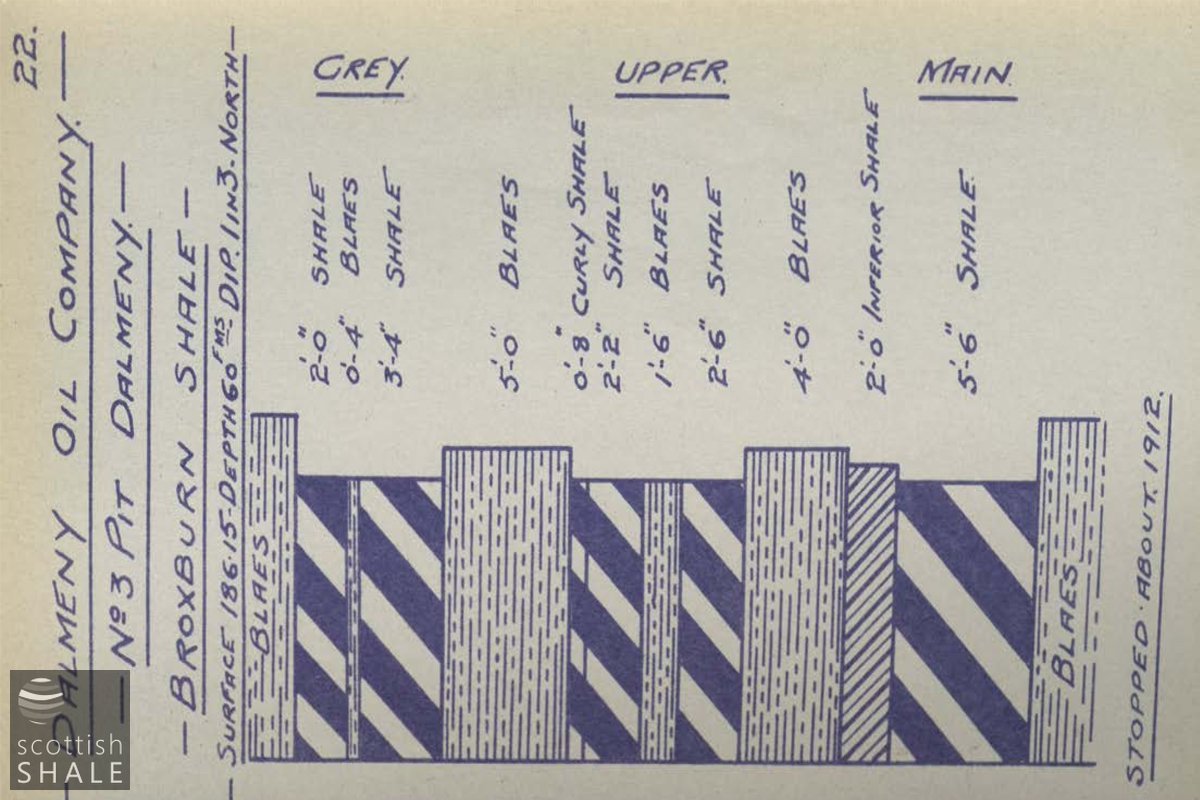 22.
DALMENY OIL COMPANY.
Nº3 PIT DALMENY.
BROXBURN SHALE
SURFACE 186·15·DEPTH 60 FMS DIP. 1 IN 3·NORTH
BLAES
GREY.
2'-0" SHALE
0'-4" BLAES
3'-4" SHALE
5'-0" BLAES
UPPER.
0'-8" CURLY SHALE
2'-2" SHALE
1'-6" BLAES
2'-6" SHALE
4'-0" BLAES
2'-0" INFERIOR SHALE
MAIN.
5'-6" SHALE.
BLAES
STOPPED·ABOUT·1912.
scottish
SHALE